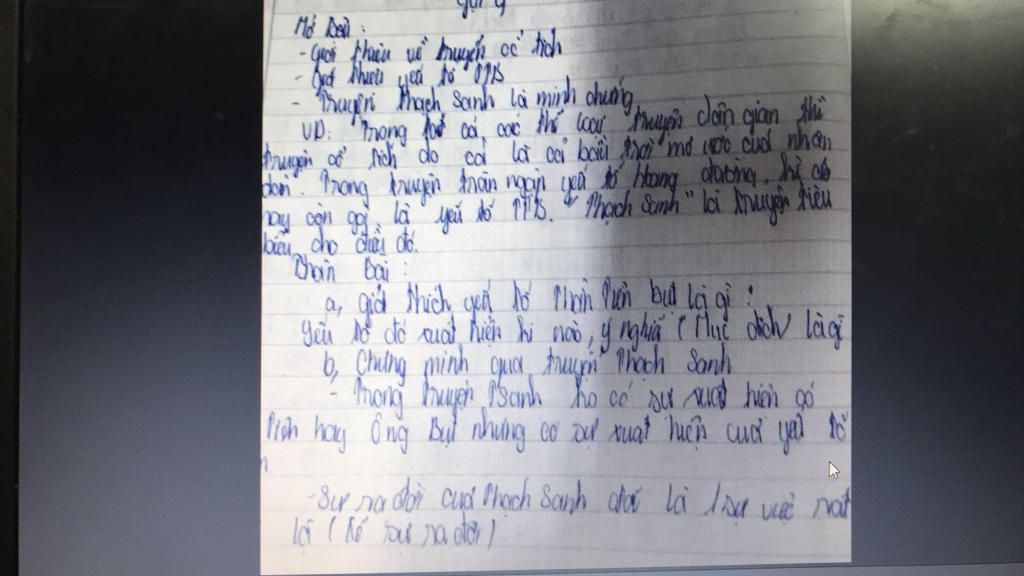 Gợi ý
Mở bài:
- Giới thiệu về truyện cổ tích
- Giới thiệu yếu tố TTB
- Truyện Thạch Sanh là minh chứng
VD: Trong tất cả các thể loại truyện dân gian thì
truyện cổ tích đó là cả bầu trời mơ ước của nhân
dân. Trong truyện tràn ngập yếu tố hoang đường, kì ảo
hay còn gọi là yếu tố TTB. "Thạch Sanh" là truyện tiêu
biểu cho điều đó.
Thân bài:
a, giải thích yếu tố thần tiên bụt là gì:
Yếu tố đó xuất hiện khi nào, ý nghĩa (Mục đích) là gì
b, Chứng minh qua truyện Thạch Sanh
- Trong truyện TSanh ko có sự xuất hiện cô
Tiên hay Ông Bụt nhưng có sự xuất hiện của yếu tố
- Sự ra đời của Thạch Sanh đó là 1 sự việc rất
lạ (kể sự ra đời)